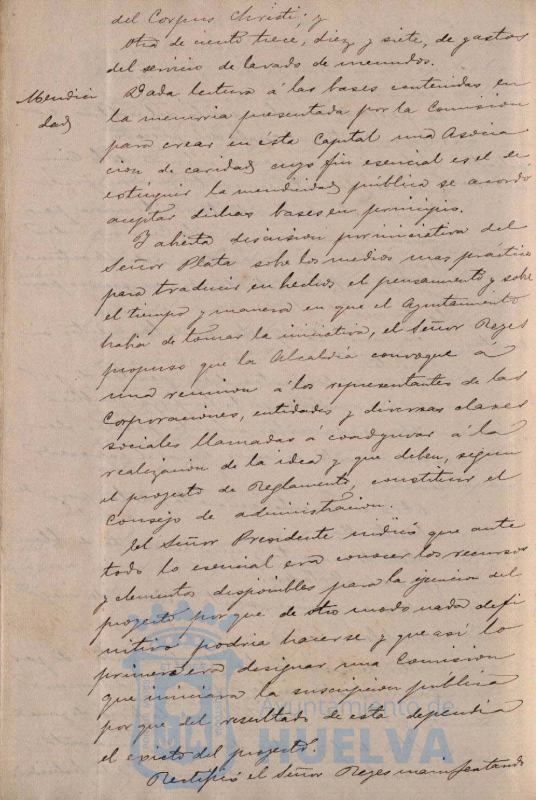 del Corpus Christi; y
Otra de ciento trece, diez y siete, de gastos
del servicio de lavado de menudos.
Mendici
dad
Dada lectura á las bases contenidas en
la memoria presentada por la Comision
para crear en ésta Capital una Asocia
cion de caridad cuyo fin esencial es el de
extinguir la mendicidad pública se acordó
aceptar dichas bases en principio.
Y abierta discusion por iniciativa del
Señor Plata sobre los medios mas prácticos
para traducir en hechos el pensamiento y sobre
el tiempo y manera en que el Ayuntamiento
habia de tomar la iniciativa, el Señor Reyes
propuso que la Alcaldia convoque a
una reunion á los representantes de las
Corporaciones, entidades y diversas clases
sociales llamadas á coadyuvar á la
realizacion de la idea y que deben, segun
el proyecto de Reglamento, constituir el
Consejo de administracion.
El Señor Presidente indicó que ante
todo lo esencial era conocer los recursos
y elementos disponibles para la ejecucion del
proyecto porque de otro modo nada defi
nitivo podria hacerse y que así lo
primero era designar una Comision
que iniciara la suscripcion pública
por que del resultado de esta dependia
el exicto del proyecto.
Rectificó el Señor Reyes manifestando
Ayuntamiento de
HUELVA